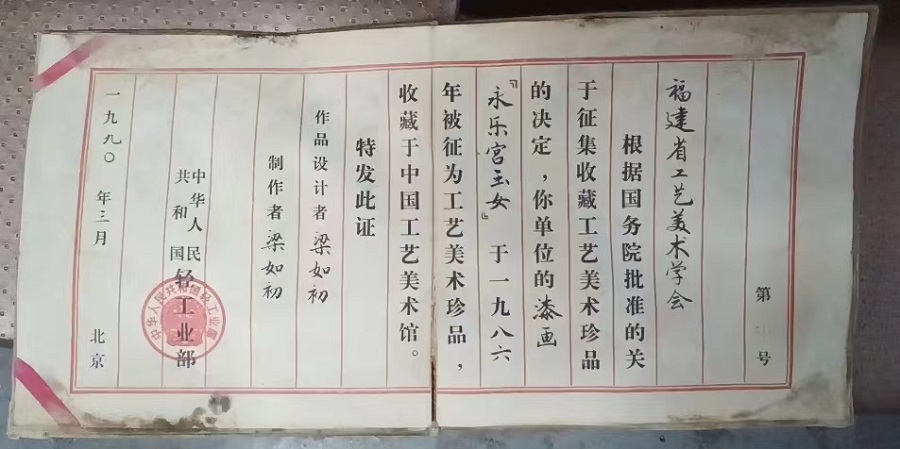 第 号
福建省工艺美术学会
根据国务院批准的关
于征集收藏工艺美术珍品
的决定，你单位的漆画
《永乐宫玉女》于一九八六
年被征为工艺美术珍品，
收藏于中国工艺美术馆。
特发此证
作品设计者 梁如初
制作者 梁如初
中华人民
共和国
轻工业部
一九九〇年三月 北京